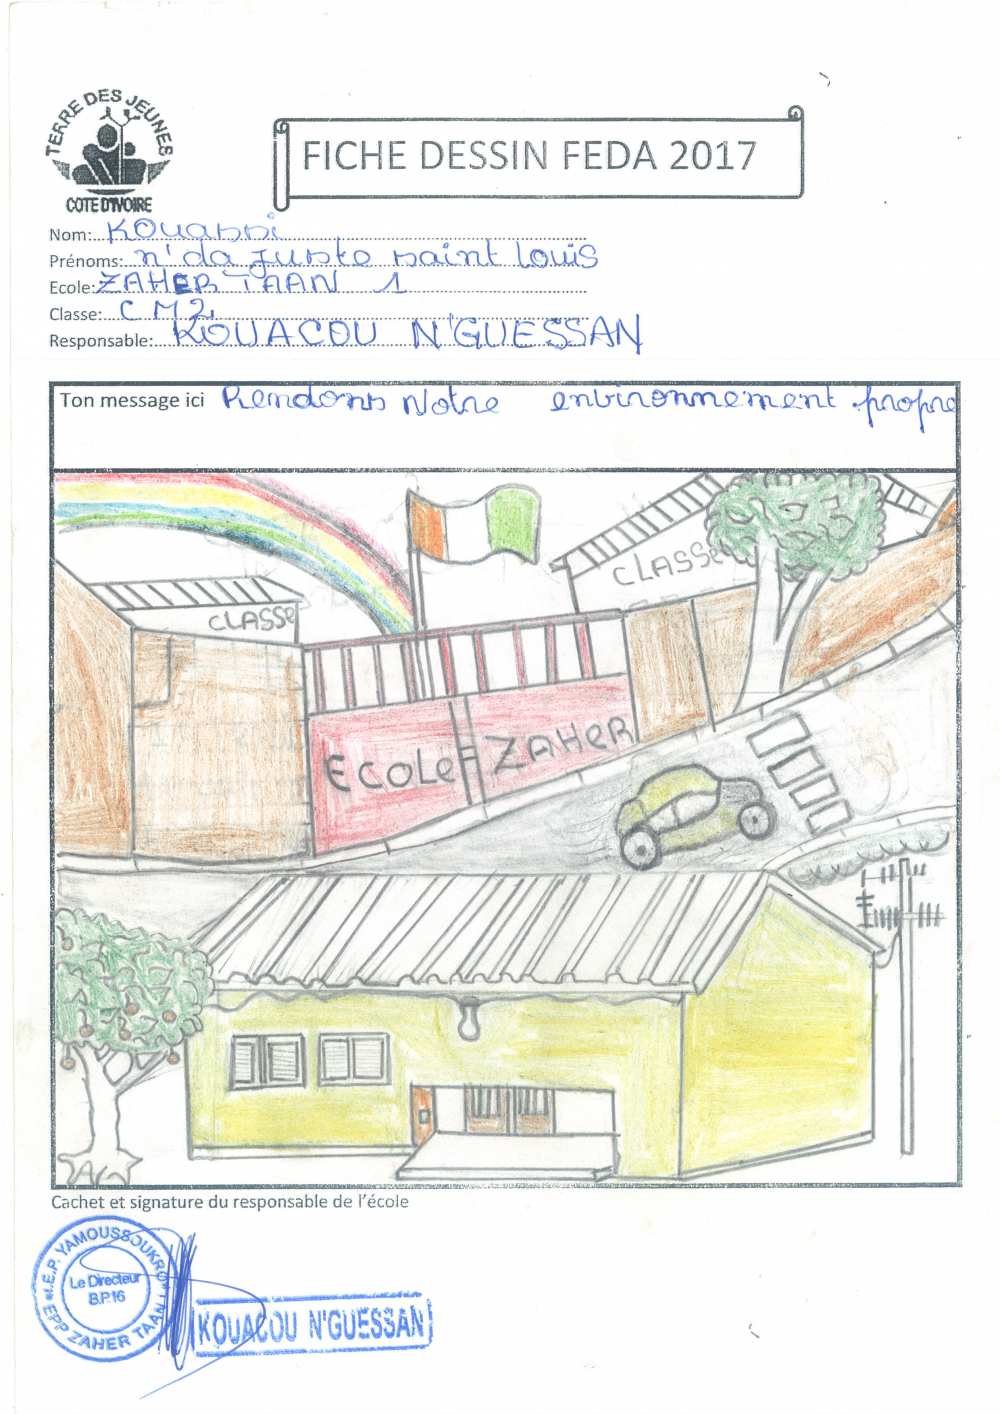 TERRE DES JEUNES
COTE D'IVOIRE
FICHE DESSIN FEDA 2017
Nom: Kouassi
Prénoms: n'da Juste saint louis
Ecole: ZAHER TAAN 1
Classe: CM2
Responsable: KOUACOU N'GUESSAN
Ton message ici Rendons Notre environnement propre
CLASSE
CLASSE
ECOLE ZAHER
Cachet et signature du responsable de l'école
I.E.P. YAMOUSSOUKRO
Le Directeur
B.P.16
EPP ZAHER TAAN I
KOUACOU N'GUESSAN